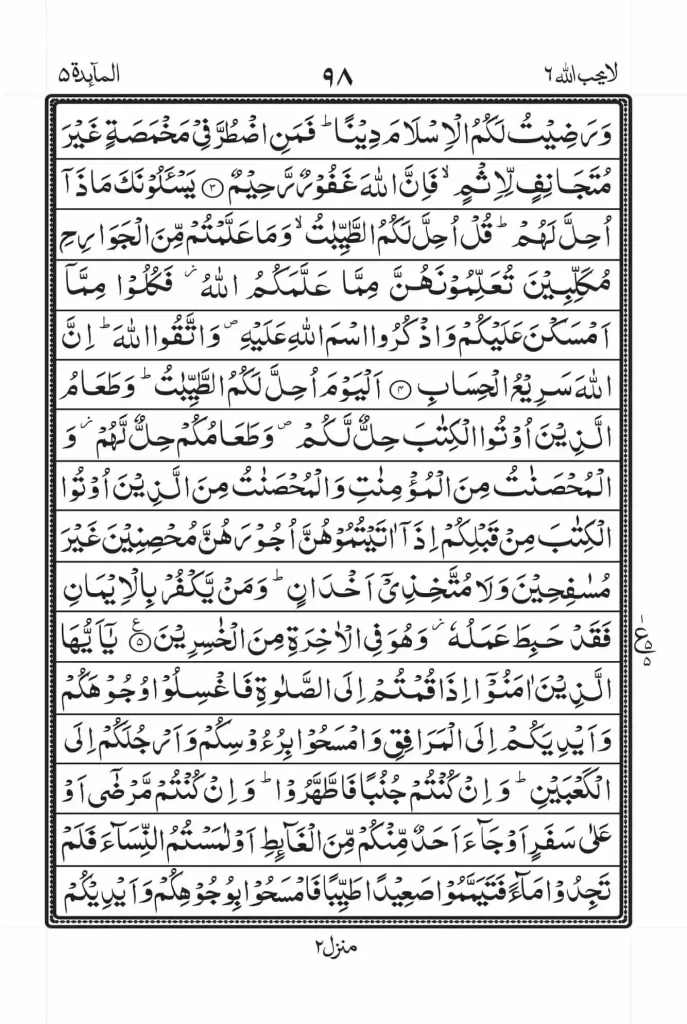 لا یحب الله ٦
٩٨
المآىِٕدة ٥
وَرَضِيْتُ لَكُمُ الْاِسْلَامَ دِيْنًا ؕ فَمَنِ اضْطُرَّ فِيْ مَخْمَصَةٍ غَيْرَ
مُتَجَانِفٍ لِّاِثْمٍ ۙ فَاِنَّ اللّٰهَ غَفُوْرٌ رَّحِيْمٌ ۝٣ يَسْـَٔلُوْنَكَ مَاذَاۤ
اُحِلَّ لَهُمْ ؕ قُلْ اُحِلَّ لَكُمُ الطَّيِّبٰتُ ۙ وَمَا عَلَّمْتُمْ مِّنَ الْجَوَارِحِ
مُكَلِّبِيْنَ تُعَلِّمُوْنَهُنَّ مِمَّا عَلَّمَكُمُ اللّٰهُ ؗ فَكُلُوْا مِمَّاۤ
اَمْسَكْنَ عَلَيْكُمْ وَاذْكُرُوا اسْمَ اللّٰهِ عَلَيْهِ ۪ وَاتَّقُوا اللّٰهَ ؕ اِنَّ
اللّٰهَ سَرِيْعُ الْحِسَابِ ۝٤ اَلْيَوْمَ اُحِلَّ لَكُمُ الطَّيِّبٰتُ ؕ وَطَعَامُ
الَّذِيْنَ اُوْتُوا الْكِتٰبَ حِلٌّ لَّكُمْ ۪ وَطَعَامُكُمْ حِلٌّ لَّهُمْ ؗ وَ
الْمُحْصَنٰتُ مِنَ الْمُؤْمِنٰتِ وَالْمُحْصَنٰتُ مِنَ الَّذِيْنَ اُوْتُوا
الْكِتٰبَ مِنْ قَبْلِكُمْ اِذَاۤ اٰتَيْتُمُوْهُنَّ اُجُوْرَهُنَّ مُحْصِنِيْنَ غَيْرَ
مُسٰفِحِيْنَ وَلَا مُتَّخِذِيْۤ اَخْدَانٍ ؕ وَمَنْ يَّكْفُرْ بِالْاِيْمَانِ
فَقَدْ حَبِطَ عَمَلُهٗ ؗ وَهُوَ فِي الْاٰخِرَةِ مِنَ الْخٰسِرِيْنَ ۝٥ۧ يٰۤاَيُّهَا
الَّذِيْنَ اٰمَنُوْۤا اِذَا قُمْتُمْ اِلَى الصَّلٰوةِ فَاغْسِلُوْا وُجُوْهَكُمْ
وَاَيْدِيَكُمْ اِلَى الْمَرَافِقِ وَامْسَحُوْا بِرُءُوْسِكُمْ وَاَرْجُلَكُمْ اِلَى
الْكَعْبَيْنِ ؕ وَاِنْ كُنْتُمْ جُنُبًا فَاطَّهَّرُوْا ؕ وَاِنْ كُنْتُمْ مَّرْضٰۤى اَوْ
عَلٰى سَفَرٍ اَوْ جَآءَ اَحَدٌ مِّنْكُمْ مِّنَ الْغَآىِٕطِ اَوْ لٰمَسْتُمُ النِّسَآءَ فَلَمْ
تَجِدُوْا مَآءً فَتَيَمَّمُوْا صَعِيْدًا طَيِّبًا فَامْسَحُوْا بِوُجُوْهِكُمْ وَاَيْدِيْكُمْ
منزل ٢